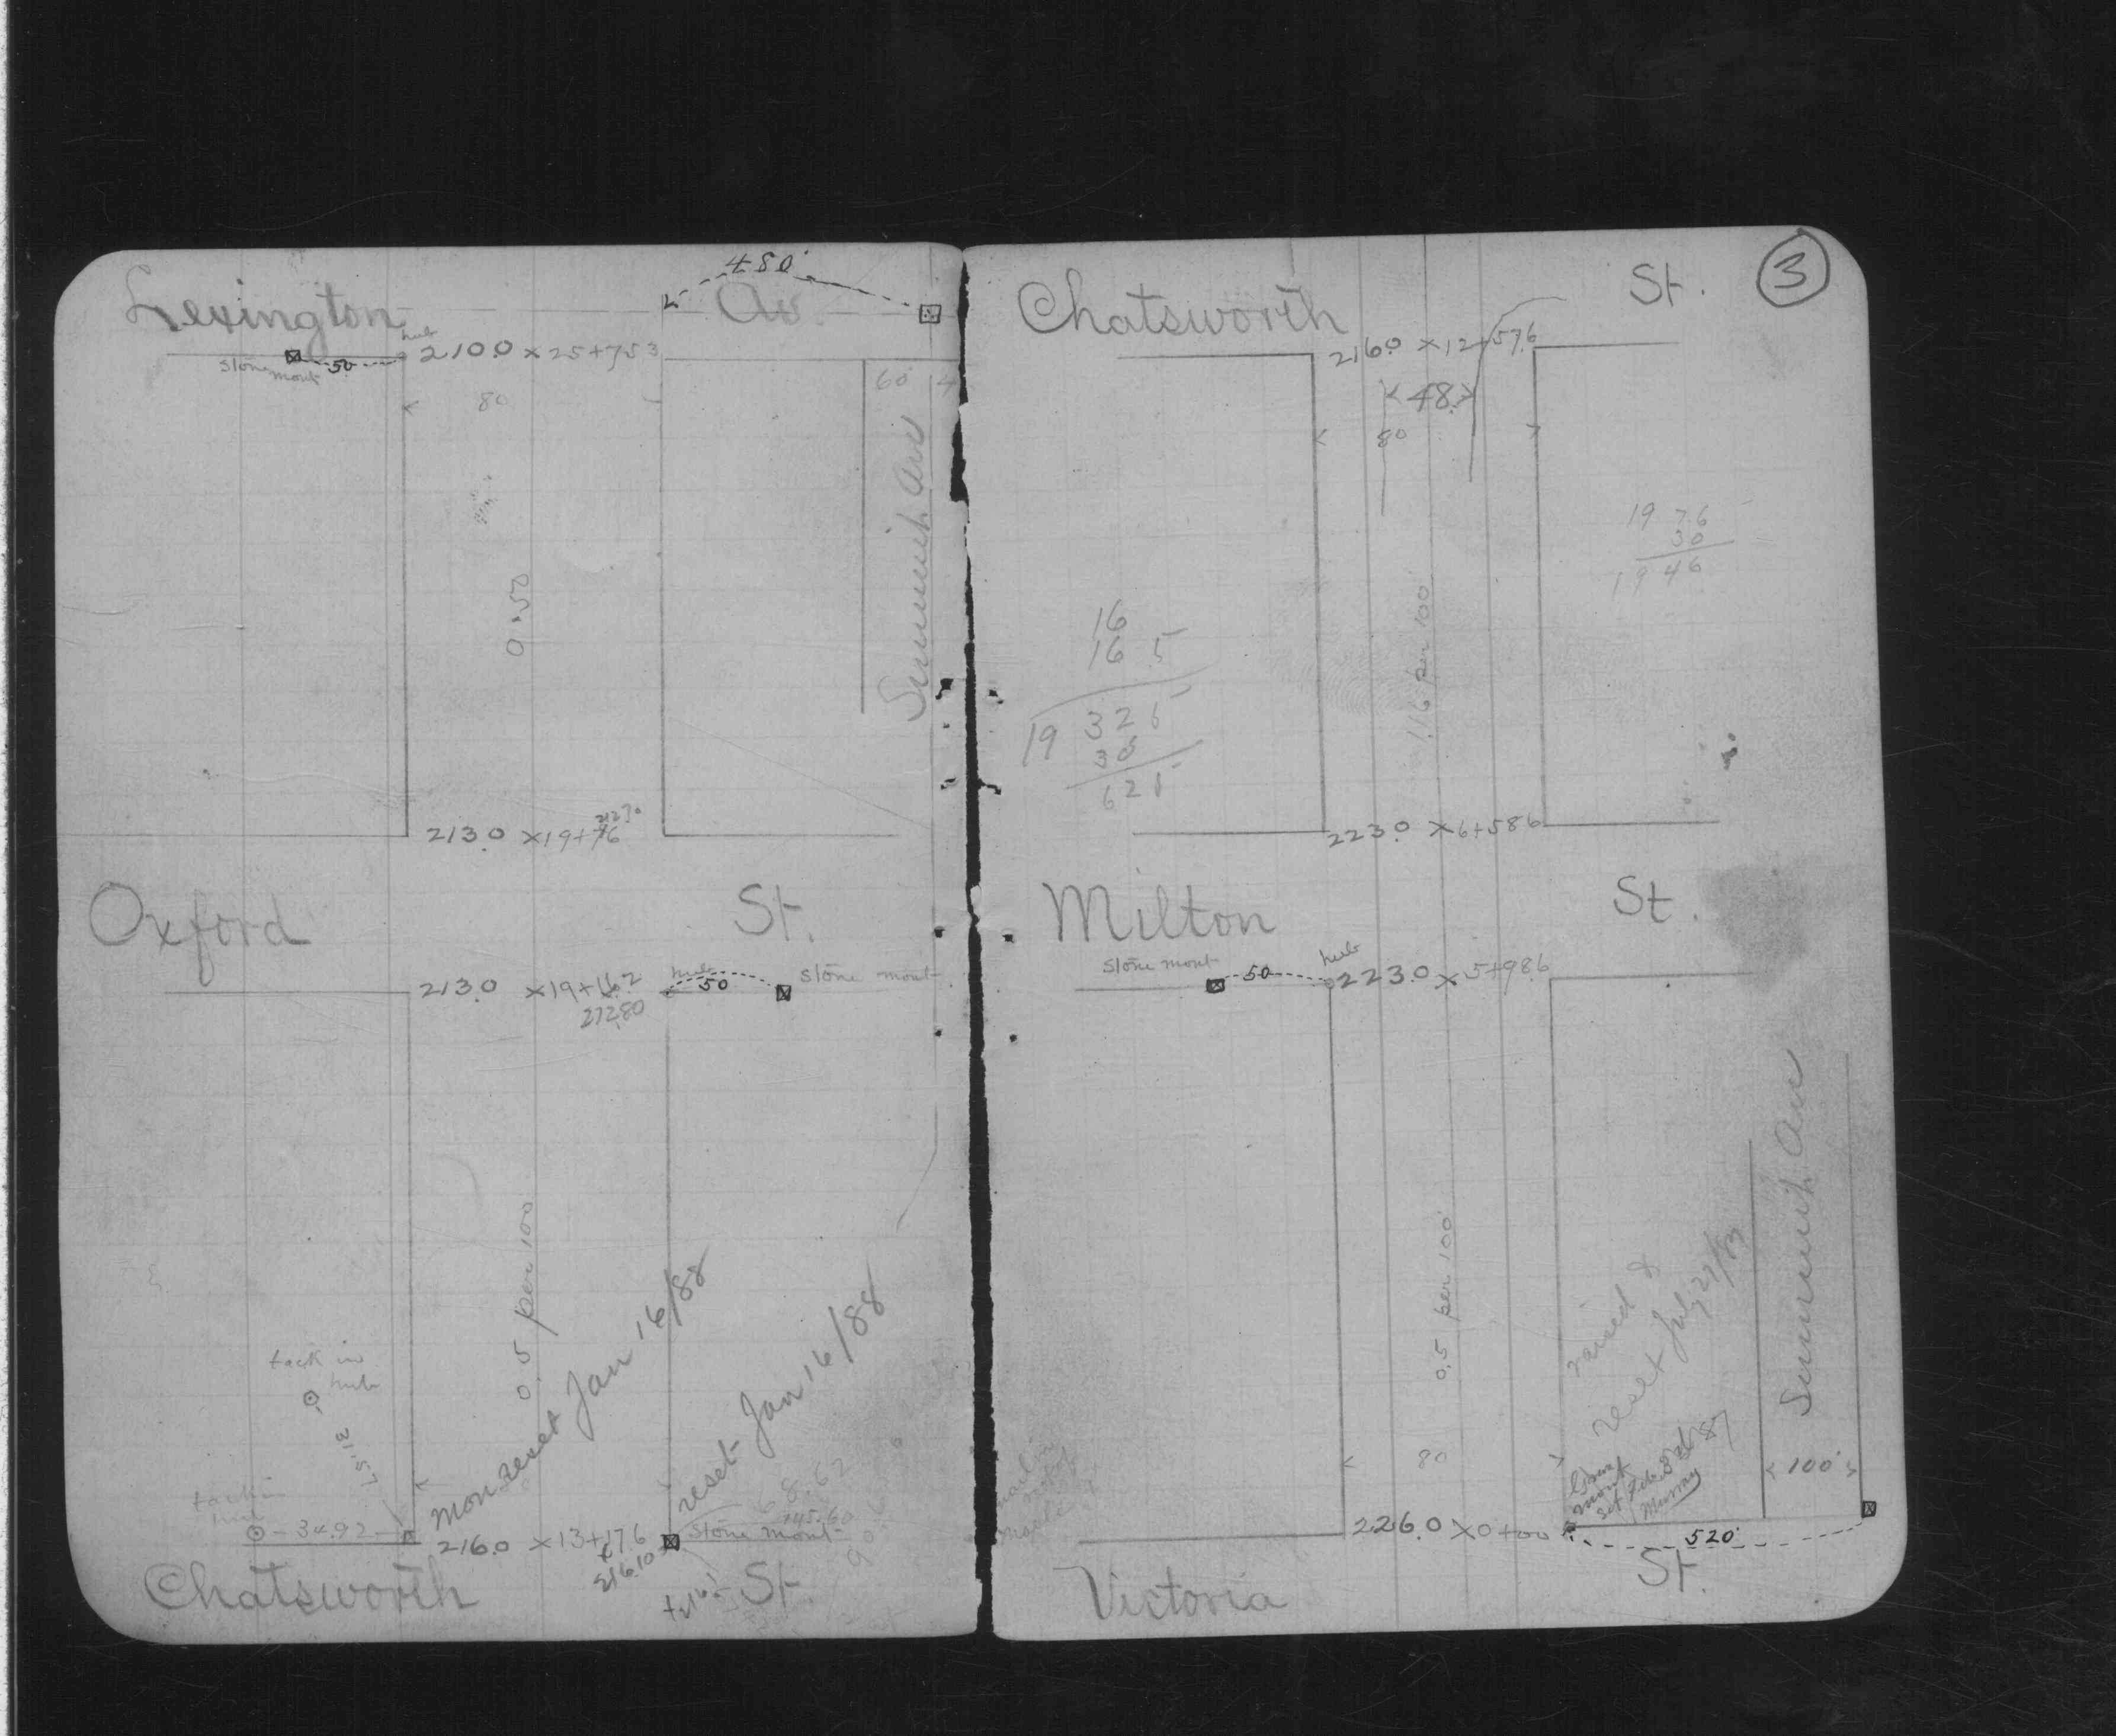 480'
Lexington Av.
hub
Stone mont 50 210.0 x 25+753
80
60
Summit Ave
0.50
212.70
213.0 x 19+76
Oxford St.
213.0 x 19+16.2 hub 50 Stone mont
212.80
0.5 per 100
tack in hub
31.57
tack in hub
34.92
Mon reset Jan 16/88
reset Jan 16/88
68.62
216.0 x 13+17.6 Stone mont
216.10
Chatsworth St.
3
Chatsworth St.
216.0 x 12+57.6
48
80
19 76
30
19 46
16
16 5
19 325
30
625
1.16 per 100'
223.0 x 6+586
Milton St.
Stone mont 50 hub 223.0 x 5+986
0.5 per 100'
Summit Ave
raised &
reset July 27/03
Stone mont set Feb. 8 87
Murray
80
100'
226.0 x 0+00
520'
Victoria St.